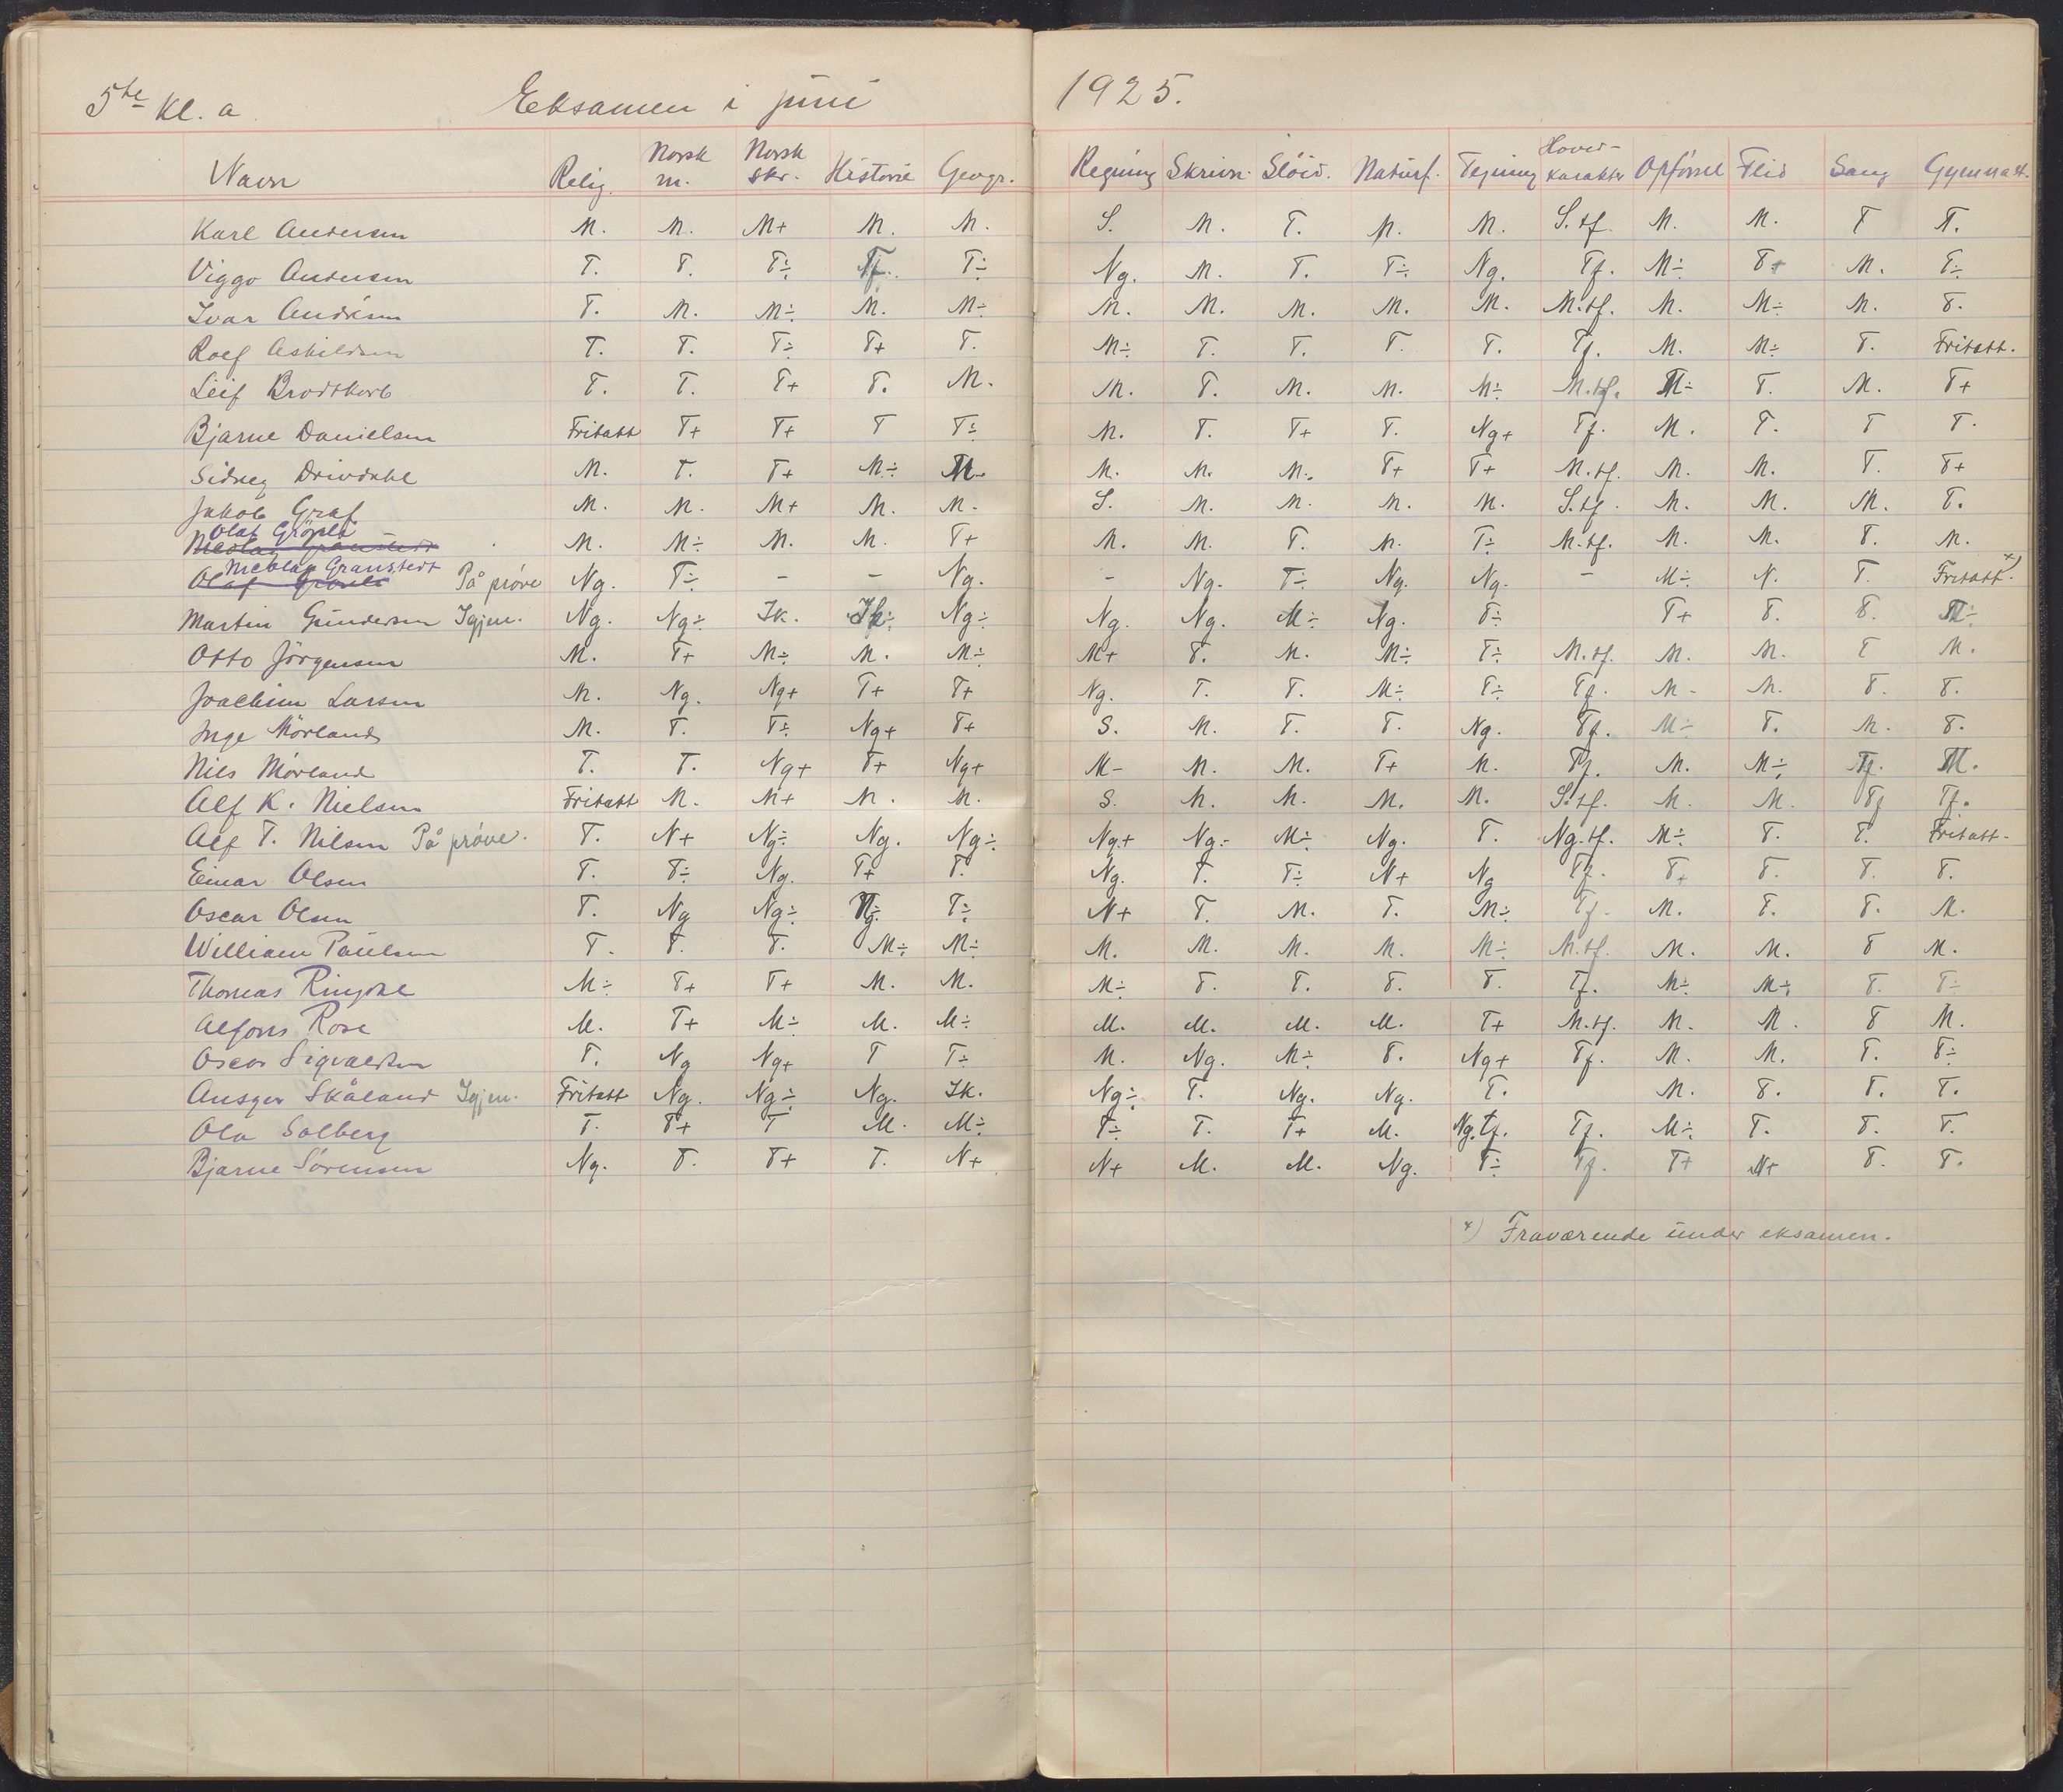 5te Kl. a. Eksamen i juni 1925.
Navn Relig. Norsk m. Norsk skr. Historie Geogr. Regning Skrivn. Slöid. Naturf. Tegning Hoved-karakter Opförsel Flid Sang Gymnast.
Karl Andersen M. M. M+ M. M. S. M. T. M. M. S.tf. M. M. T T.
Viggo Andersen T. T. T÷ Tf. T÷ Ng. M. T. T÷ Ng. Tf. M÷ T+ M. T÷
Ivar Andåsen T. M. M÷ M. M÷ M. M. M. M. M. M.tf. M. M÷ M. T.
Rolf Askildsen T. T. T÷ T+ T. M÷ T. T. T. T. Tf. M. M÷ T. Fritatt.
Leif Brodtkorb T. T. T+ T. M. M. T. M. M. M÷ M.tf. M÷ T. M. T+
Bjarne Danielsen Fritatt T+ T+ T T÷ M. T. T+ T. Ng+ Tf. M. T. T T.
Sidney Drivdahl M. T. T+ M÷ M. M. M. M. T+ T+ M.tf. M. M. T. T+
Jakob Graf M. M. M+ M. M. S. M. M. M. M. S.tf. M. M. M. T.
Nicolay Granstedt Olaf Grönli M. M÷ M. M. T+ M. M. T. M. T÷ M.tf. M. M. T. M.
Olaf Grönli Nicolay Granstedt På prøve Ng. T÷ - - Ng. - Ng. T÷ Ng. Ng. - M÷ N. T. Fritatt. x)
Martin Gundersen Igjen. Ng. Ng÷ Ik. Ik÷ Ng÷ Ng. Ng. M÷ Ng. T÷ T+ T. T. M÷
Otto Jörgensen M. T+ M÷ M. M÷ M+ T. M. M÷ T÷ M.tf. M. M. T M.
Joachim Larsen M. Ng. Ng+ T+ T+ Ng. T. T. M÷ T÷ Tf. M. M. T. T.
Inge Mörland M. T. T÷ Ng+ T+ S. M. T. T. Ng. Tf. M÷ T. M. T.
Nils Mörland T. T. Ng+ T+ Ng+ M- M. M. T+ M. Tf. M. M÷ Tf. M.
Alf K. Nielsen Fritatt M. M+ M. M. S. M. M. M. M. S.tf. M. M. Tf Tf.
Alf T. Nilsen På prøve. T. N+ Ng÷ Ng. Ng÷ Ng+ Ng- M÷ Ng. T. Ng.tf. M÷ T. T. Fritatt-
Einar Olsen T. T÷ Ng. T+ T. Ng. T. T÷ N+ Ng Tf. T+ T. T. T.
Oscar Olsen T. Ng Ng÷ Ng. T÷ N+ T. M. T. M÷ Tf. M. T. T. M.
William Paulsen T. T. T. M÷ M÷ M. M. M. M. M÷ M.tf. M. M. T M.
Thomas Ringdal M÷ T+ T+ M. M. M÷ T. T. T. T. Tf. M÷ M÷ T. T÷
Alfons Rose M. T+ M÷ M. M÷ M. M. M. M. T+ M.tf. M. M. T M.
Oscar Sigvaldsen T. Ng Ng+ T T÷ M. Ng. M÷ T. Ng+ Tf. M. M. T. T÷
Ansger Skåland Igjen. Fritatt Ng. Ng÷ Ng. Ik. Ng÷ T. Ng. Ng. T. M. T. T. T.
Ola Solberg T. T+ T M. M÷ T÷ T. T+ M. Ng.tf. Tf. M÷ T. T. T.
Bjarne Sörensen Ng. T. T+ T. N+ N+ M. M. Ng. T÷ Tf. T+ N+ T. T.
x) Fraværende under eksamen.